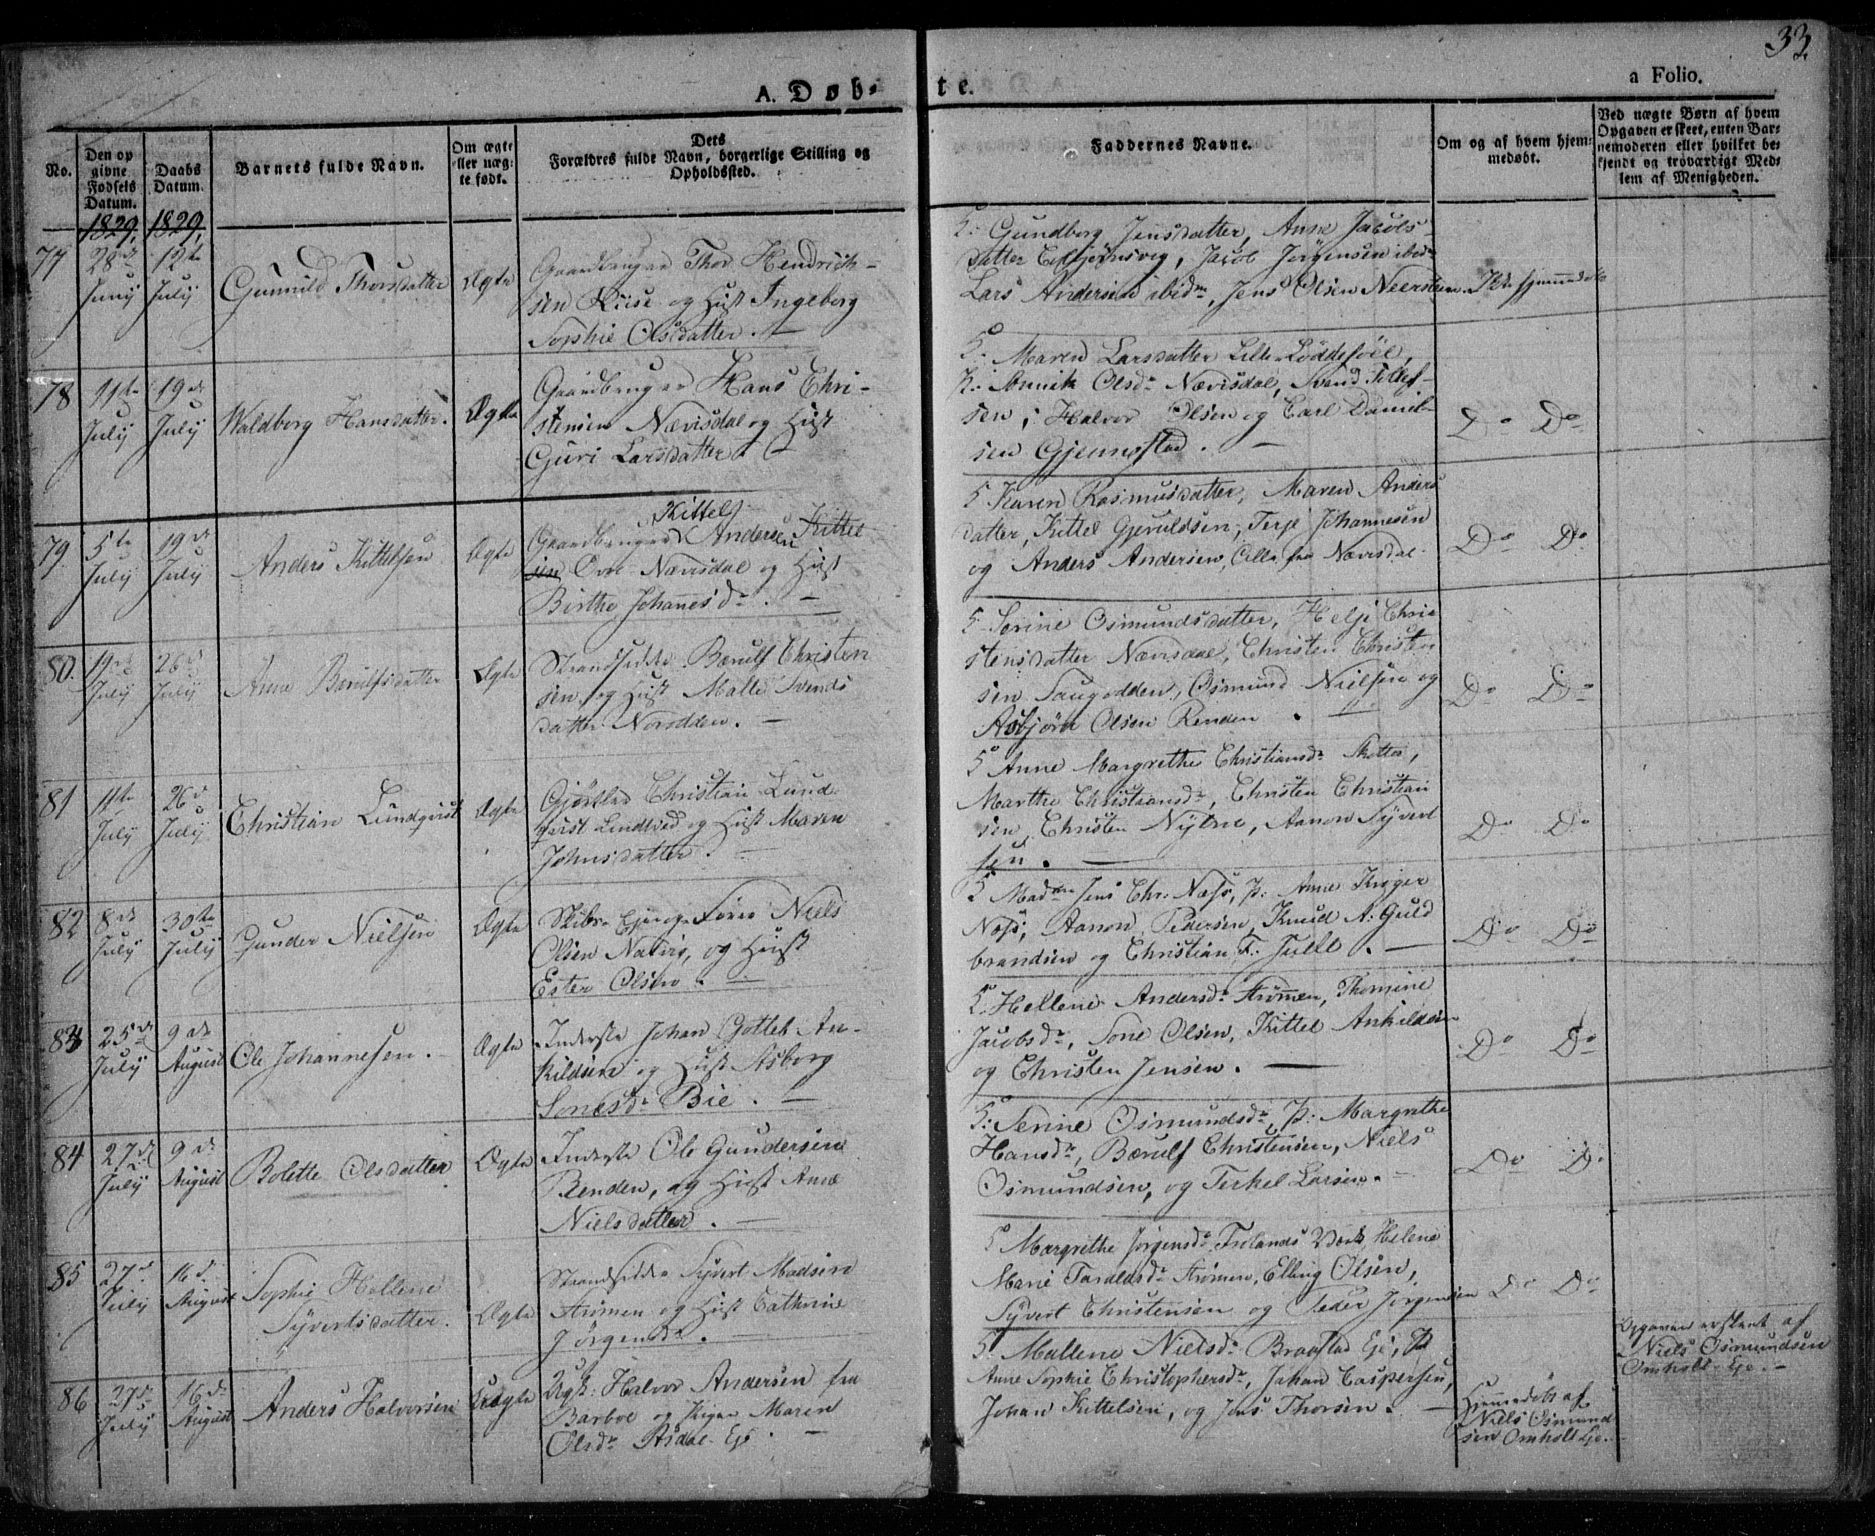 33.
A. Døb-
te.
a Folio.
No.
Den op
givne
Fødsels
Datum.
Daabs
Datum.
Barnets fulde Navn.
Om ægte
eller uæg-
te født.
Dets
Forældres fulde Navn, borgerlige Stilling og
Opholdssted.
Faddernes Navne.
Om og af hvem hjem-
medøbt.
Ved uægte Børn af hvem
Opgaven er skeet, enten Bar-
nemoderen eller hvilket be-
kjendt og troværdigt Med-
lem af Menigheden.
1829, 1829,
77
28de
Juny
12te
July
Gunnild Thorsdatter
Ægte
Gaardbruger Thor Hendrich-
sen Kiise og Hust Ingeborg
Sophie Olsdatter. —
5. Gundborg Jensdatter, Anne Jacobs-
datter Ebbjørnsvig, Jacob Jørgensen ibid
Lars Andersen ibidm, Jens Olsen Neersteen.
Ikke hjemmedøbt
78
11te
July
19de
July
Waldborg Hansdatter.
Ægte
Gaardbruger Hans Chri-
stensen Nævisdal og Hust
Guri Larsdatter. —
5. Maren Larsdatter Lille Løddesøel,
P. Annik Olsdr Nævisdal, Svend Tellef-
sen, Halvor Olsen og Carl Daniel-
sen Gjennestad. —
Do Do
79.
5te
July
19de
July
Anders Kittelsen
Ægte
Kittel
Gaardbruger Andersen Kittel
sen Øvr Nævisdal og Hust
Birthe Johannesdr. —
5 Karen Rasmusdatter, Maren Anders
datter, Kittel Gjeruldsen, Terje Johannesen
og Anders Andersen, Alle fra Nævisdal.
Do Do
80.
19de
July
26de
July
Anne Berulfsdatter
Ægte
Strandsidder Bærulf Christen
sen, og Hust Malle Svends
datter Nordden. —
5 Serine Osmundsdatter, Helje Chri
stensdatter Nævisdal, Christen Christen
sen Saugodden, Osmund Nielsen og
Asbjørn Olsen Renden. —
Do Do
81
11te
July
26de
July
Christian Lundqvist
Ægte
Gjørtler Christian Lund
qvist Lindtved og Hust Maren
Johnsdatter. —
5 Anne Margrethe Christiansdr
Marthe Christiansdr, Christen Christian
sen, Christen Nytræ, Aanon Syvert
sen. —
Do Do
82
8de
July
30te
July
Gunder Nielsen
Ægte
Skibs-Eier og Fører Niels
Olsen Natvig, og Hust
Ester Olsen. —
5 Madme Jens Chr. Næss, P. Anne Krøger
Næss, Aanon Pedersen, Knud A. Guld
brandsen og Christian F. Juell. —
Do Do
83
25de
July
9de
August
Ole Johannesen.
Ægte
Inderste Johan Gotleb An-
kildsen og Hust Asborg
Sonesdr Bie. —
5. Hellene Andersdr Strømen, Thomine
Jacobsdr, Sone Olsen, Kittel Ankildsen
og Christen Jensen. —
Do Do
84
27de
July
9de
August
Bolette Olsdatter
Ægte
Inderste Ole Gundersen
Renden, og Hust Anne
Nielsdatter. —
5: Serine Osmundsdr, P: Margrethe
Hansdr, Bærulf Christensen, Niels
Osmundsen, og Terkel Larsen. —
Do Do
85
27de
July
16de
August
Sophie Hellene
Syvertsdatter.
Ægte
Strandsidder Syvert Madsen
Strømen og Hust Cathrine
Jørgensdr. —
5 Margrethe Jørgensdr Frolands Værk, Helene
Marie Taraldsdr Strømen, Elling Olsen,
Syvert Christensen og Peder Jørgensen
Do Do
86
27de
July
16de
August
Anders Halvorsen
Uægte
Ungk: Halvor Andersen fra
Barboe og Pigen Maren
Olsdr Asdal Eje. —
5. Mallene Nielsdr Braastad Eje, P
Anne Sophie Christophersdr, Johan Caspersen,
Johan Kittelsen, og Jens Thorsen. —
Hjemmedøbt af
Niels Osmund-
sen Omholt Eje. —
Opgaven er skeet af
Niels Osmundsen
Omholt Eje. —